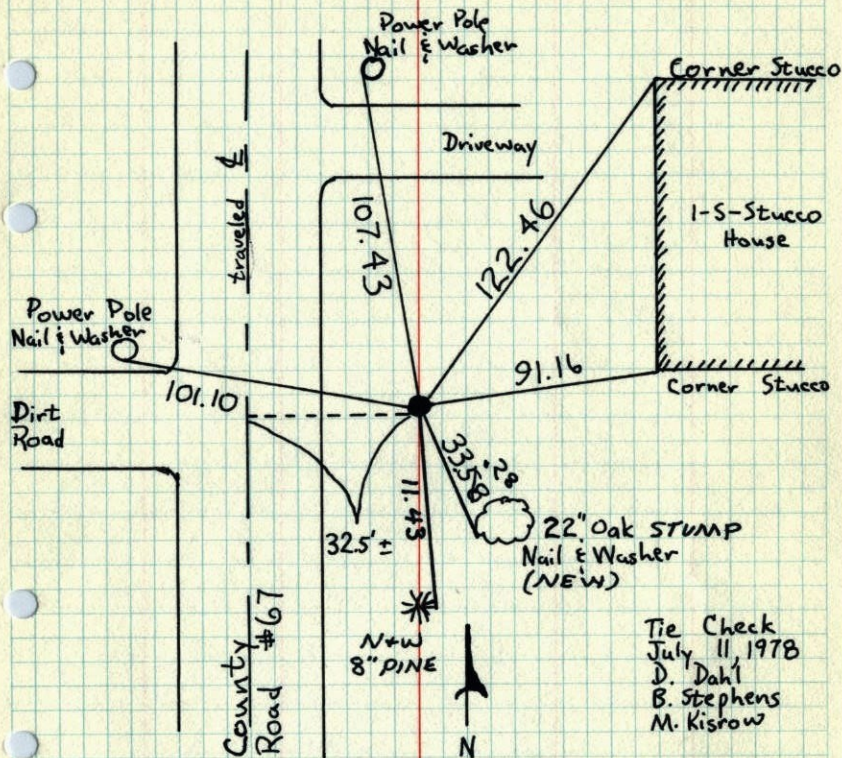 Power Pole
Nail & Washer
Corner Stucco
Driveway
traveled ℄
107.43
122.46
1-S-Stucco
House
Power Pole
Nail & Washer
101.10
91.16
Corner Stucco
Dirt
Road
33.58
.28
11.43
32.5'±
22" Oak STUMP
Nail & Washer
(NEW)
County
Road #67
N+W
8" PINE
N
Tie Check
July 11, 1978
D. Dahl
B. Stephens
M. Kisrow